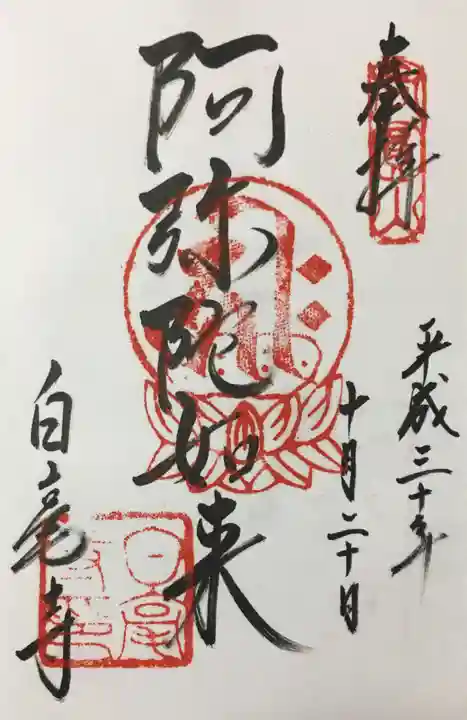 奉拝
平成三十年
十月二十日
阿弥陀如来
白毫寺